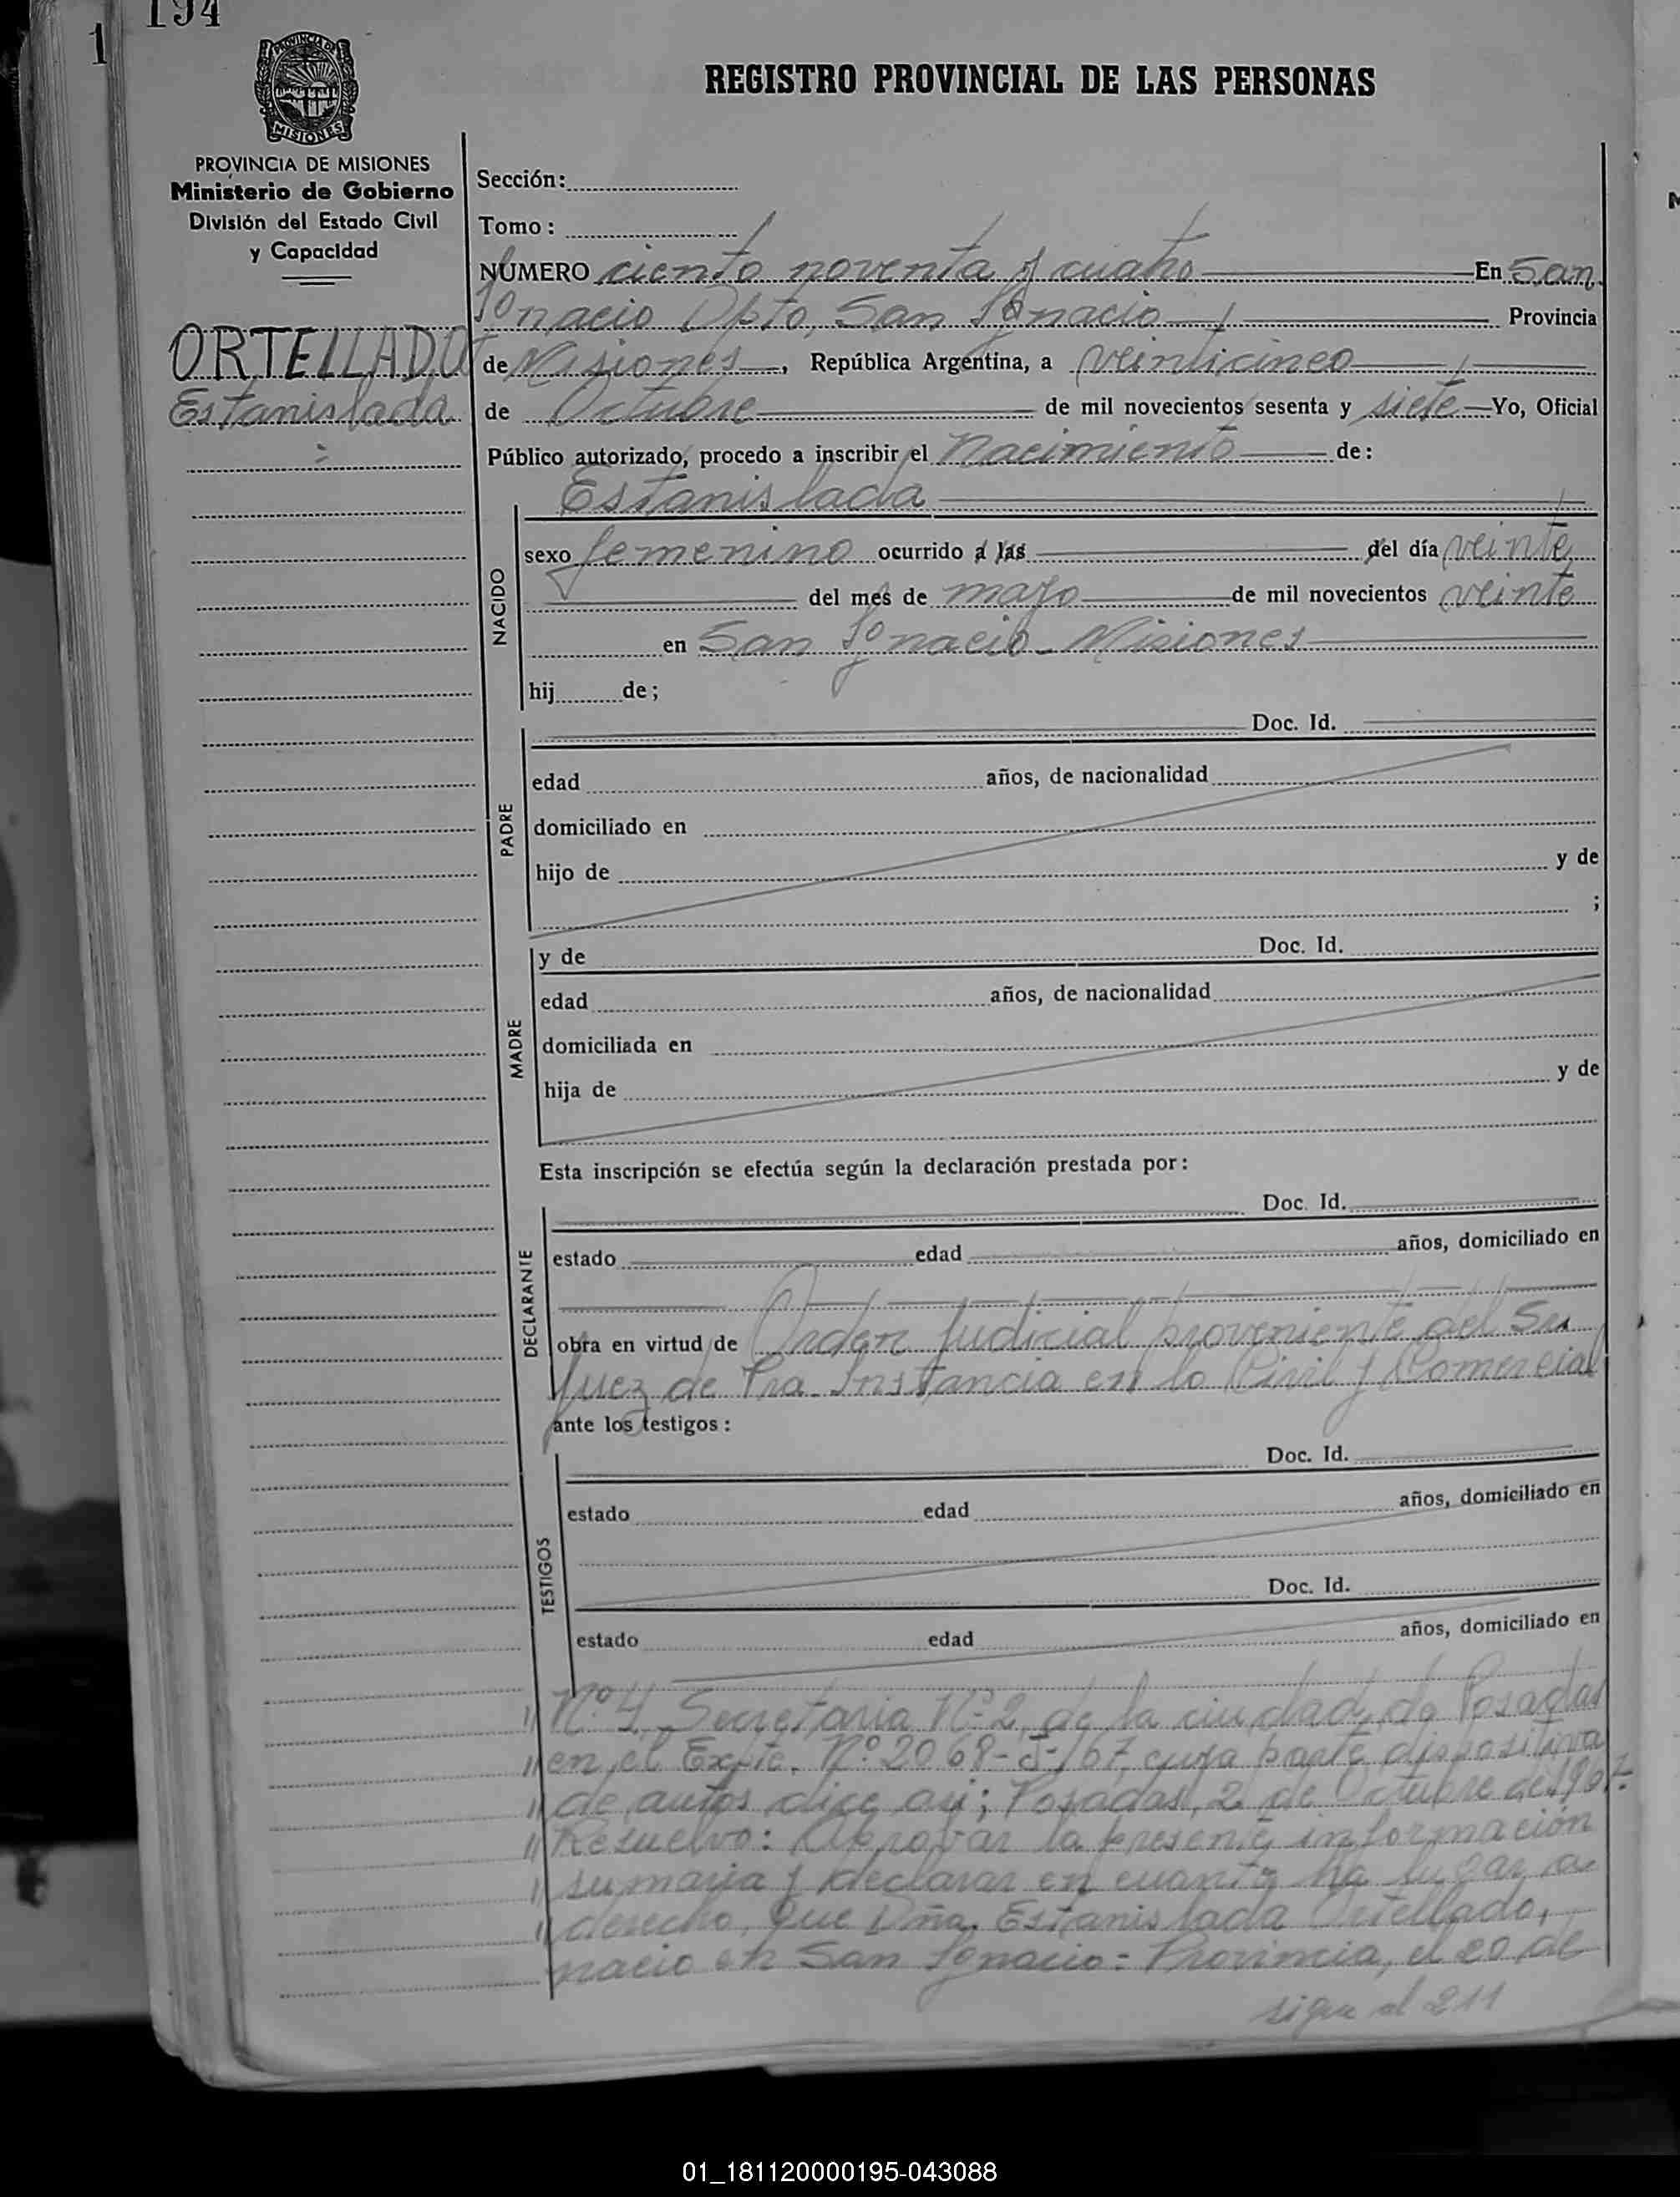 194
1
PROVINCIA DE
MISIONES
REGISTRO PROVINCIAL DE LAS PERSONAS
PROVINCIA DE MISIONES
Ministerio de Gobierno
División del Estado Civil
y Capacidad
ORTELLADO
Estanislada
Sección:
Tomo:
NÚMERO ciento noventa y cuatro En San
Ignacio Dpto, San Ignacio Provincia
de Misiones, República Argentina, a veinticinco
de Octubre de mil novecientos sesenta y siete Yo, Oficial
Público autorizado, procedo a inscribir el Nacimiento de:
Estanislada
NACIDO
sexo femenino ocurrido a las del día veinte
del mes de mayo de mil novecientos veinte
en San Ignacio - Misiones
hij de;
PADRE
Doc. Id.
edad años, de nacionalidad
domiciliado en
hijo de y de
;
MADRE
y de Doc. Id.
edad años, de nacionalidad
domiciliada en
hija de y de
Esta inscripción se efectúa según la declaración prestada por:
DECLARANTE
Doc. Id.
estado edad años, domiciliado en
obra en virtud de Orden Judicial proveniente del Sr.
Juez de 1ra. Instancia en lo Civil y Comercial
ante los testigos:
TESTIGOS
Doc. Id.
estado edad años, domiciliado en
Doc. Id.
estado edad años, domiciliado en
// Nº 4, Secretaria Nº 2, de la ciudad de Posadas
// en el Expte. Nº 2068-J-/67, cuya parte dispositiva
// de autos dice así; Posadas, 2 de Octubre de 1967-
// Resuelvo: Aprobar la presente información
// sumaria y declarar en cuanto ha lugar a
// derecho, que Dña. Estanislada Ortellado,
nacio en San Ignacio - Provincia, el 20 de
sigue al 211
01_181120000195-043088